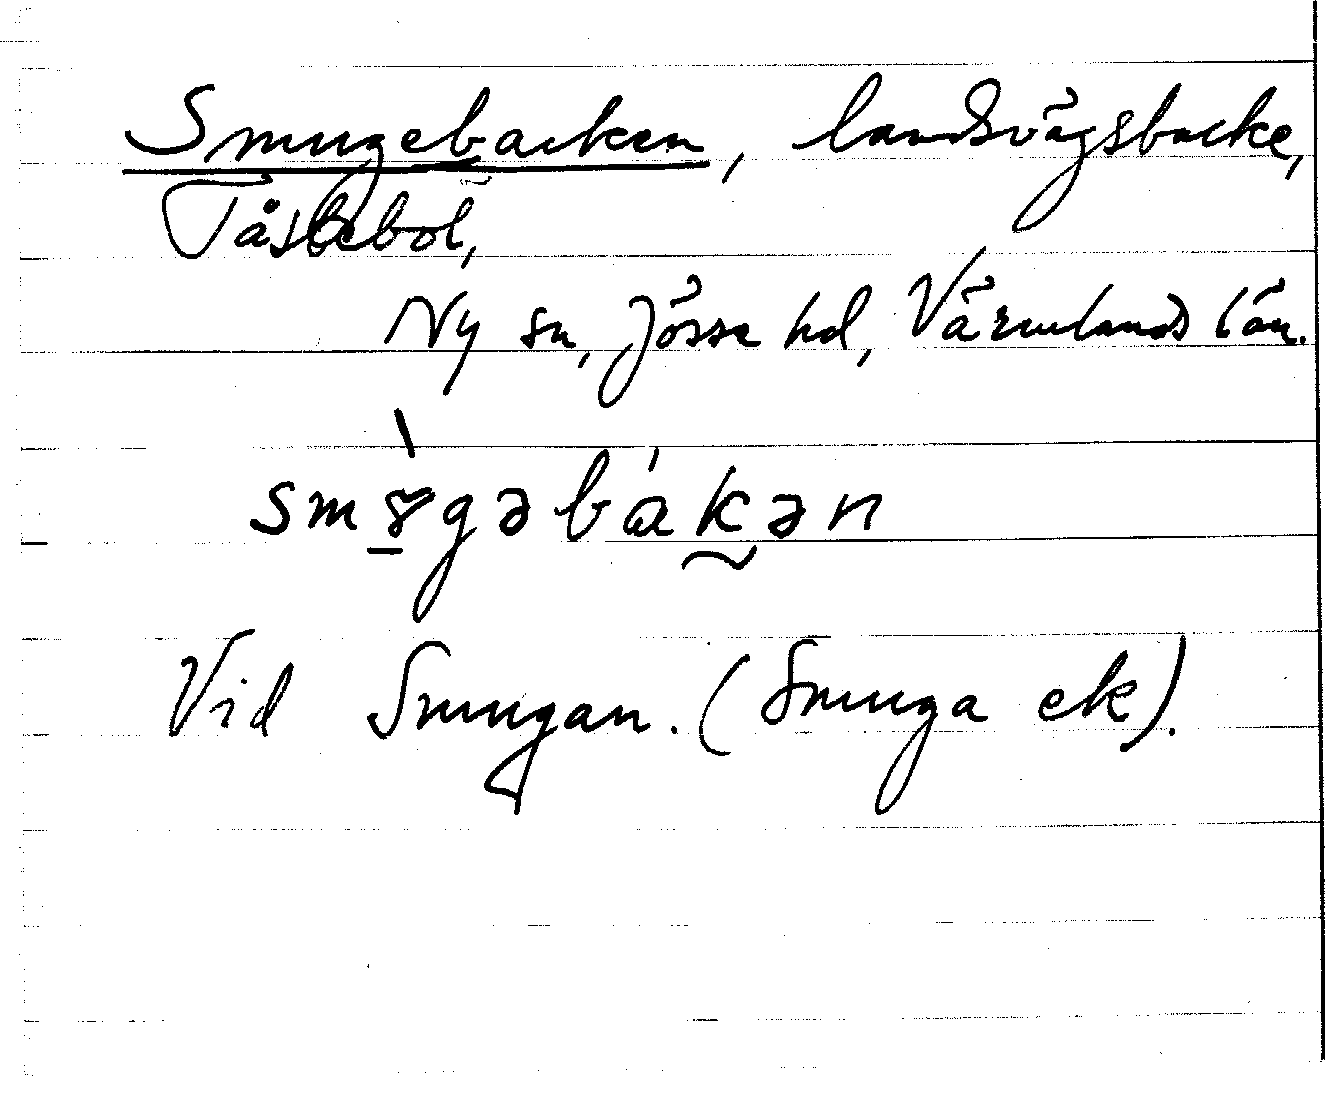 Smugebacken, landsvägsbacke,
Tåstebol,
Ny sn, Jösse hd, Värmlands län.
smɤ̀gəbákən
Vid Smugan. (Smuga ek).